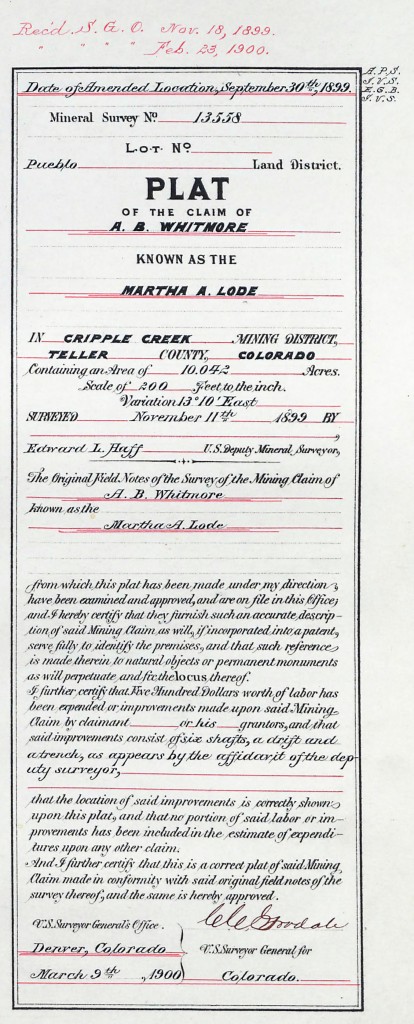 Rec'd. S. G. O. Nov. 18, 1899.
" " " " Feb. 23, 1900.
A.P.S.
J.V.S.
E.G.B.
J.V.S.
Date of Amended Location, September 30th, 1899.
Mineral Survey No. 13558
LOT No.
Pueblo Land District.
PLAT
OF THE CLAIM OF
A. B. WHITMORE
KNOWN AS THE
MARTHA A. LODE
IN CRIPPLE CREEK MINING DISTRICT,
TELLER COUNTY, COLORADO
Containing an Area of 10.042 Acres.
Scale of 200 Feet to the inch.
Variation 13° 10' East
SURVEYED November 11th 1899 BY
,
Edward L. Haff U.S. Deputy Mineral Surveyor,
The Original Field Notes of the Survey of the Mining Claim of
A. B. Whitmore
known as the
Martha A. Lode
from which this plat has been made under my direction,
have been examined and approved, and are on file in this Office;
and I hereby certify that they furnish such an accurate descrip-
tion of said Mining Claim as will, if incorporated into a patent,
serve fully to identify the premises, and that such reference
is made therein to natural objects or permanent monuments
as will perpetuate and fix the locus thereof.
I further certify that Five Hundred Dollars worth of labor has
been expended or improvements made upon said Mining
Claim by claimant or his grantors, and that
said improvements consist of six shafts, a drift and
a trench, as appears by the affidavit of the dep
uty surveyor,
that the location of said improvements is correctly shown
upon this plat, and that no portion of said labor or im-
provements has been included in the estimate of expendi-
tures upon any other claim.
And I further certify that this is a correct plat of said Mining
Claim made in conformity with said original field notes of the
survey thereof, and the same is hereby approved.
U.S. Surveyor General's Office. CC Goodale
Denver, Colorado U.S. Surveyor General for
March 9th, 1900 Colorado.